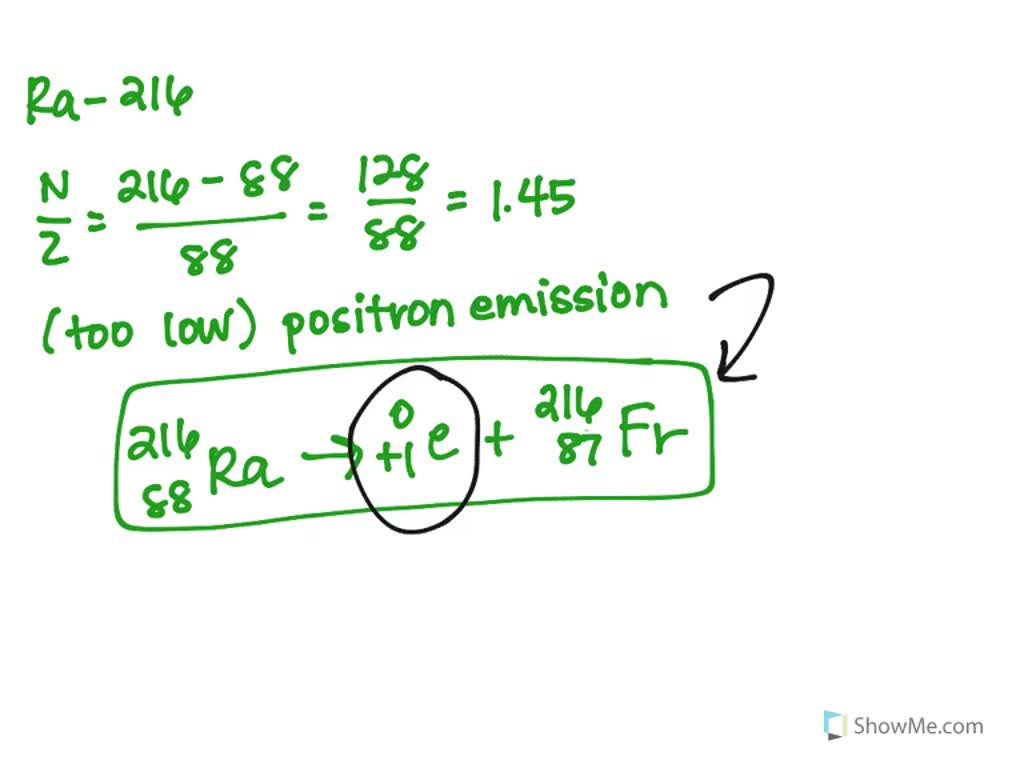 Ra - 216
N/Z = 216 - 88 / 88 = 128/88 = 1.45
(too low) positron emission
²¹⁶₈₈Ra → ⁰₊₁e + ²¹⁶₈₇Fr
ShowMe.com